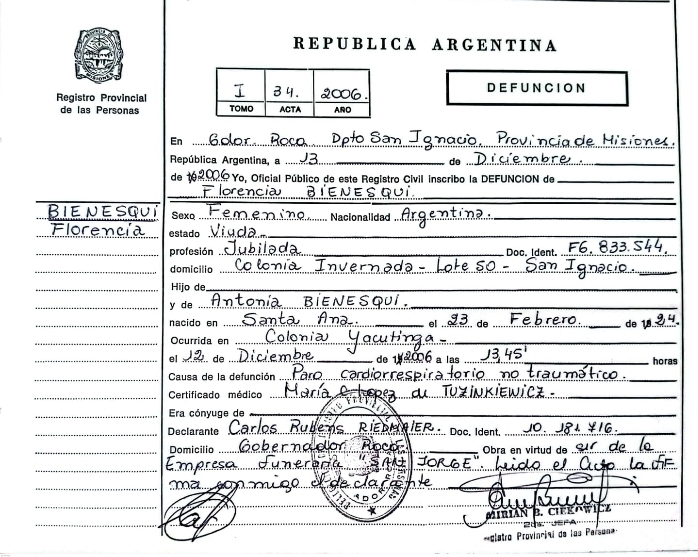 REPUBLICA ARGENTINA
Registro Provincial
de las Personas
I 34. 2006.
TOMO ACTA AÑO
DEFUNCION
En Gdor. Roca Dpto San Ignacio, Provincia de Misiones.
República Argentina, a 13 de Diciembre.
de 2006 Yo, Oficial Público de este Registro Civil inscribo la DEFUNCION de
Florencia BIENESQUI.
BIENESQUI
Florencia
Sexo Femenino Nacionalidad Argentina.
estado Viuda-
profesión Jubilada Doc. Ident. F6.833.544.
domicilio Colonia Invernada - Lote 50 - San Ignacio.
Hijo de
y de Antonia BIENESQUI.
nacido en Santa Ana. el 23 de Febrero. de 1924.
Ocurrida en Colonia Yacutinga-
el 12 de Diciembre de 2006 a las 13,45' horas
Causa de la defunción Paro cardiorrespiratorio no traumático.
Certificado médico María C. Lopez de TUZINKIEWICZ-
Era cónyuge de
Declarante Carlos Rubens RIEDMAIER. Doc. Ident. 10.181.716.
Domicilio Gobernador Roca. Obra en virtud de ser de la
Empresa funeraria "SAN JORGE". Leído el Acta la fir
ma conmigo el declarante
MIRIAN B. CIEKOWICZ
2da. JEFA
Registro Provincial de las Personas